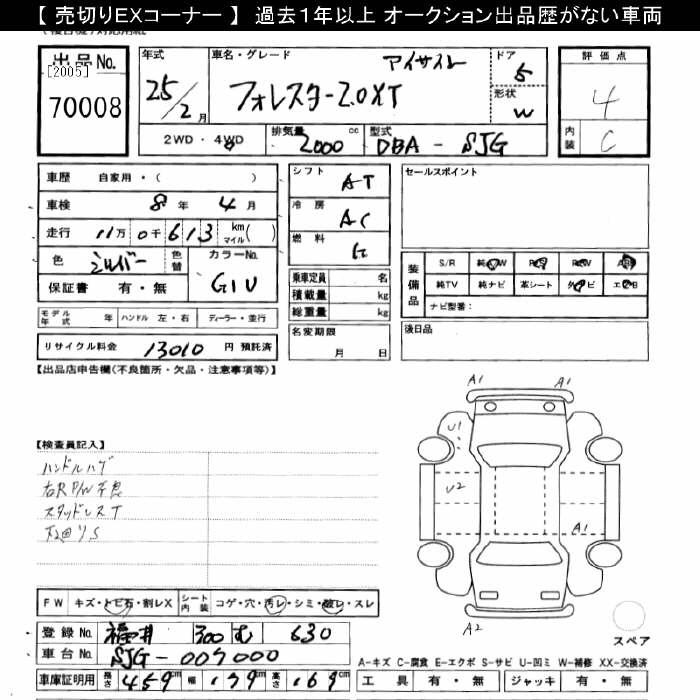 【 売切りEXコーナー 】 過去1年以上 オークション出品歴がない車両
出品No. 年式 車名・グレード アイサイト ドア 評価点
[2005]
70008 25/2月 フォレスター2.0XT 5 形状 W 4
2WD・4WD 排気量 2000 cc 型式 DBA - SJG 内装 C
車歴 自家用・( ) シフト AT セールスポイント
車検 8年 4月 冷房 AC
走行 11万0千613 km マイル( ) 燃料 G
色 シルバー 色替 カラーNo. G1U 装備品 S/R 純AW P/S P/W ABS
保証書 有・無 乗車定員 名 純TV 純ナビ 革シート 外ナビ エアB
積載量 kg ナビ型番:
モデル年式 年 ハンドル 左・右 ディーラー・並行 総重量 kg
リサイクル料金 13010 円 預託済 名変期限 月 日 後日品
【出品店申告欄(不良箇所・欠品・注意事項等)】
A1 A1
【検査員記入】 U1
ハンドルハゲ
右R P/W不良 U2
スタッドレスT
下回りS A1
FW キズ・トビ石・割レX シート内装 コゲ・穴・汚レ・シミ・破レ・スレ
登録No. 福井 300 む 630 A2 スペア
車台No. SJG-007000
A-キズ C-腐食 E-エクボ S-サビ U-凹ミ W-補修 XX-交換済
車庫証明用 長さ 459cm 幅 179cm 高さ 169cm 工具 有・無 ジャッキ 有・無